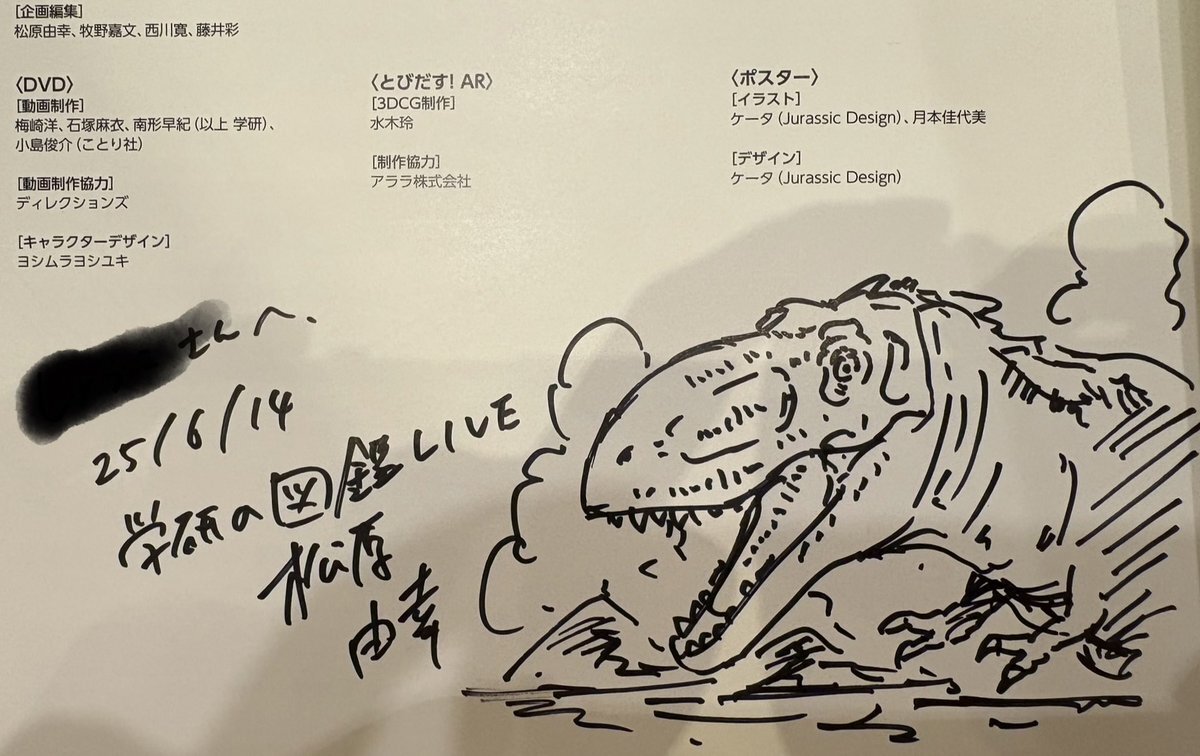 [企画編集]
松原由幸、牧野嘉文、西川寛、藤井彩
〈DVD〉
[動画制作]
梅崎洋、石塚麻衣、南形早紀（以上 学研）、
小島俊介（ことり社）
[動画制作協力]
ディレクションズ
[キャラクターデザイン]
ヨシムラヨシユキ
〈とびだす! AR〉
[3DCG制作]
水木玲
[制作協力]
アララ株式会社
〈ポスター〉
[イラスト]
ケータ（Jurassic Design）、月本佳代美
[デザイン]
ケータ（Jurassic Design）
さんへ.
25/6/14
学研の図鑑LIVE
松原
由幸